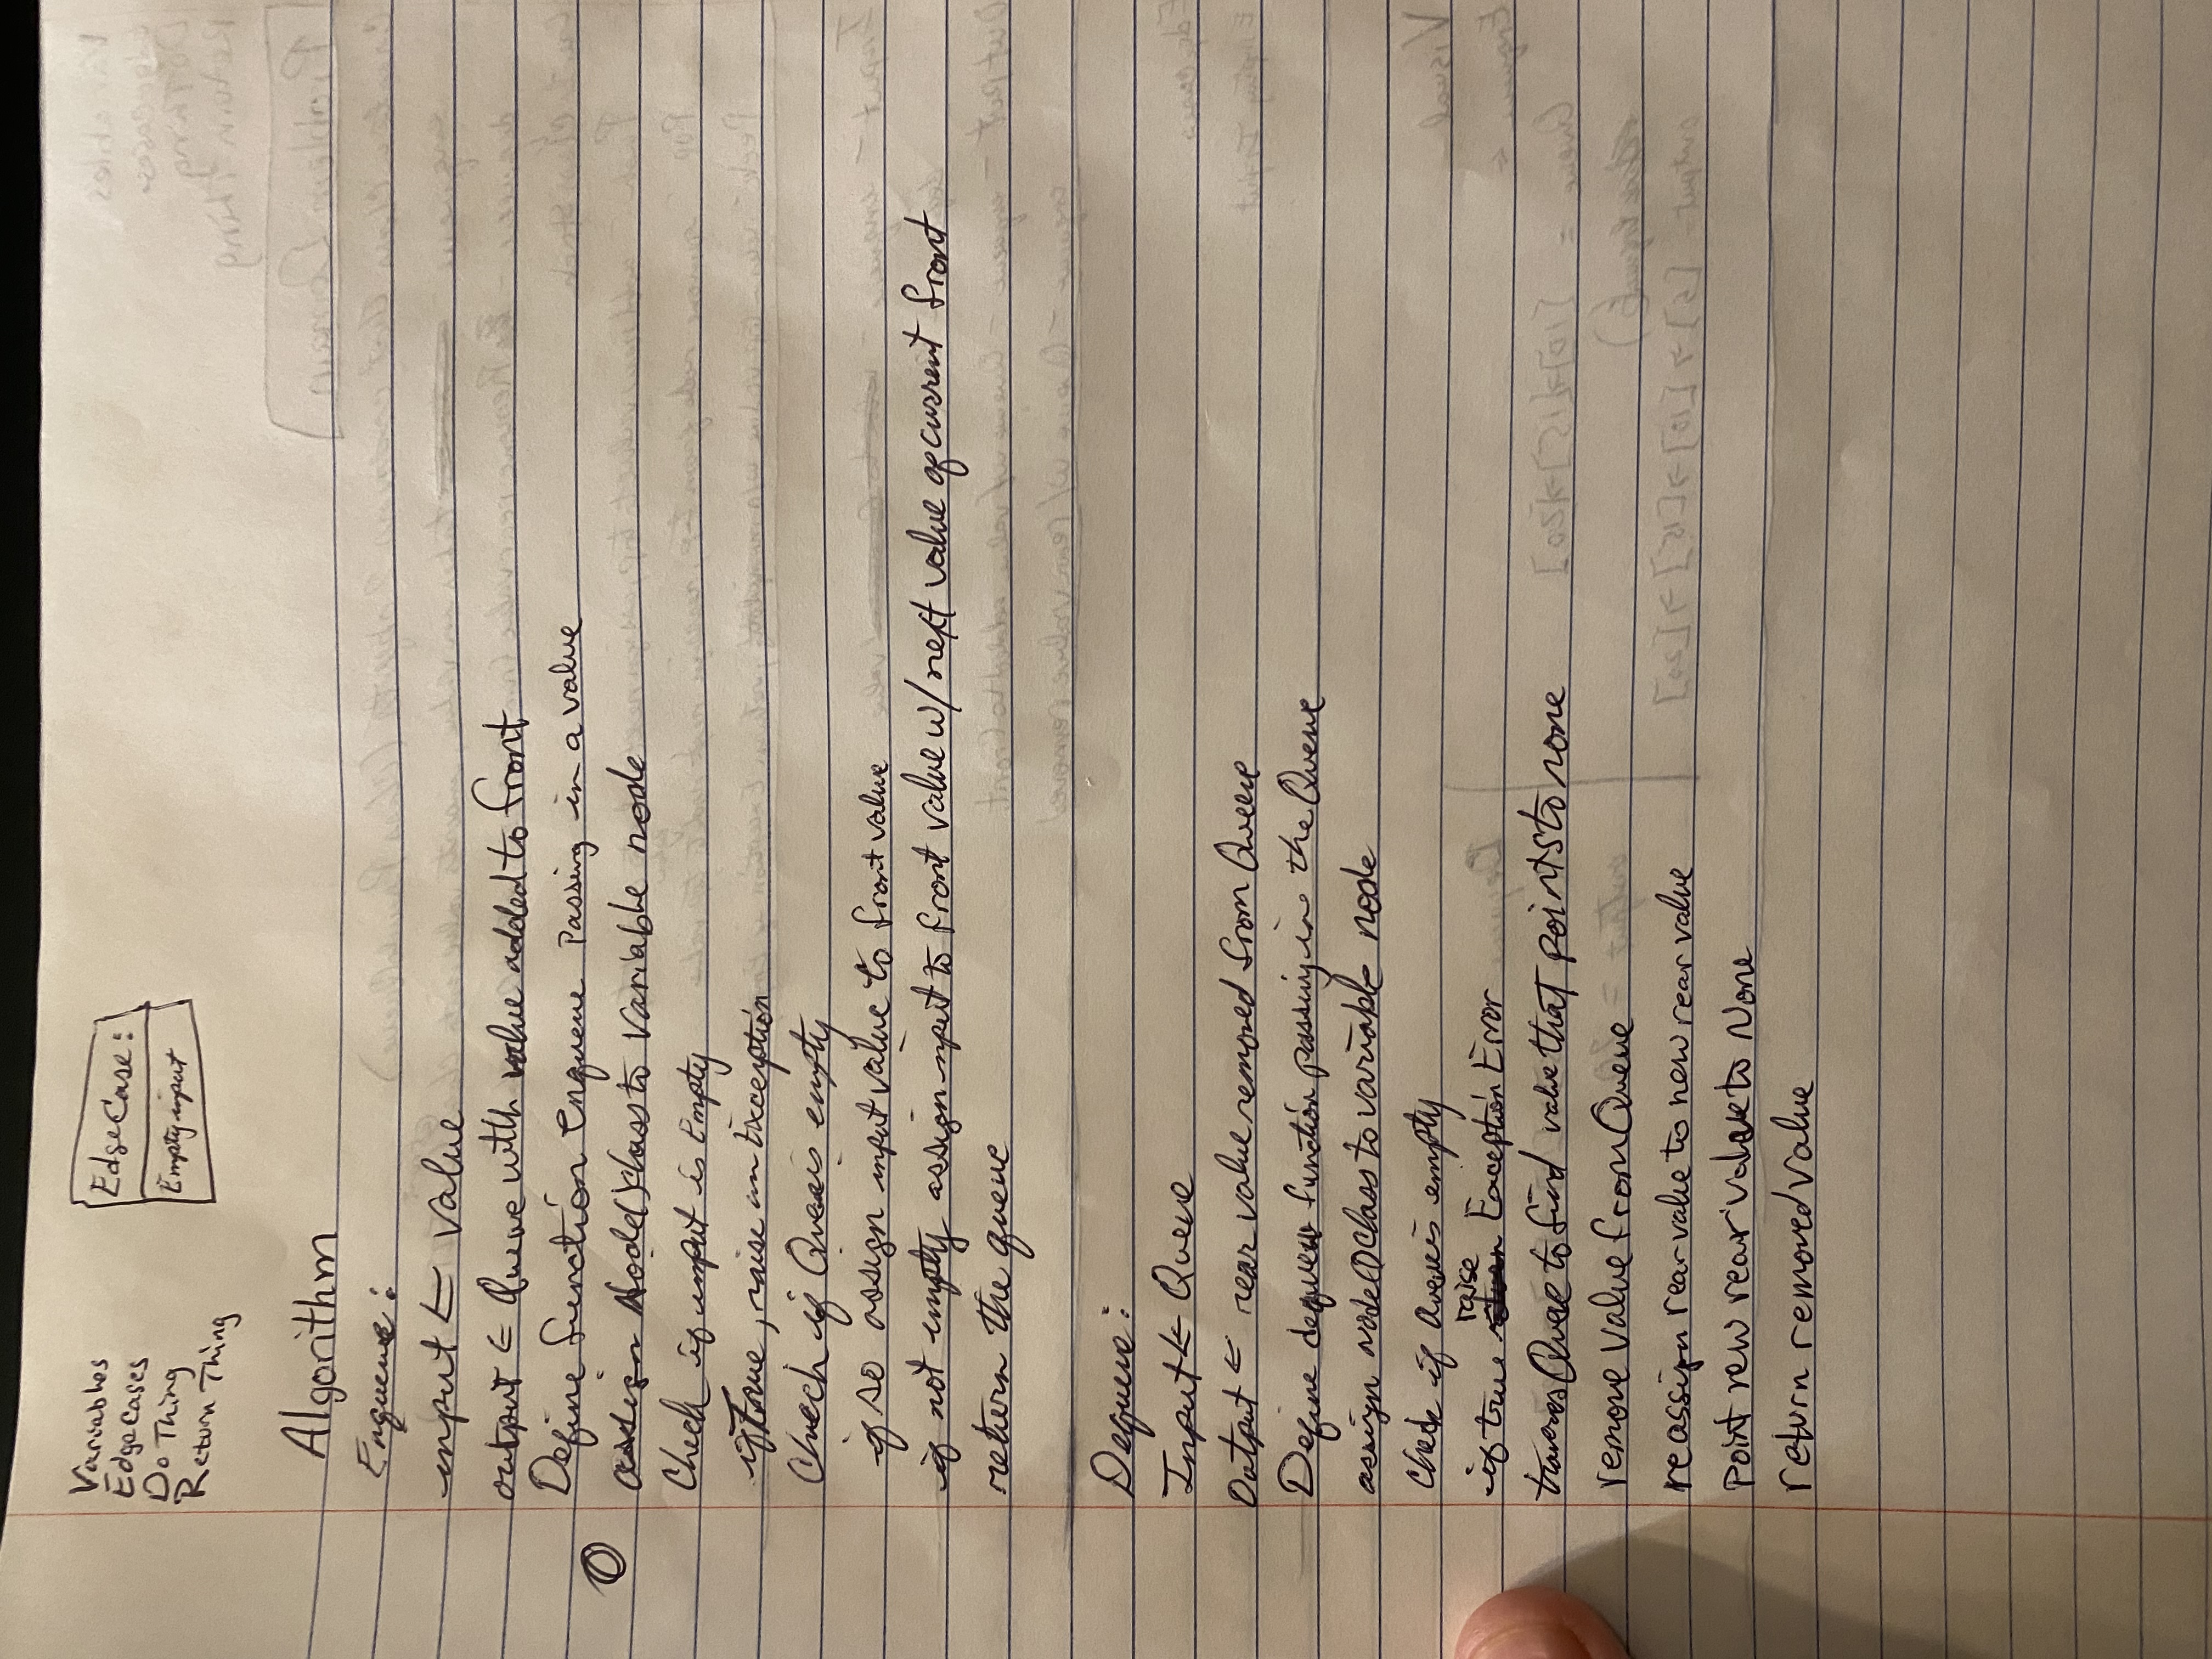 Variables
Edgecases
Do Thing
Return Thing
EdgeCase:
Empty input
Algorithm
Enqueue:
input ← value
output ← Queue with value added to front
Define function enqueue Passing in a value
assign Node() class to variable node
Check if input is Empty
if True, raise an Exception
Check if Queue is empty
if so assign input value to front value
if not empty assign input to front value w/ next value of current front
return the queue
Dequeue:
Input ← Queue
Output ← rear value removed from Queue
Define dequeue function passing in the Queue
assign node() class to variable node
Check if Queue is empty
if true raise Exception Error
travers Queue to find value that points to none
remove value from Queue
reassign rear value to new rear value
Point new rear value to None
return removed value